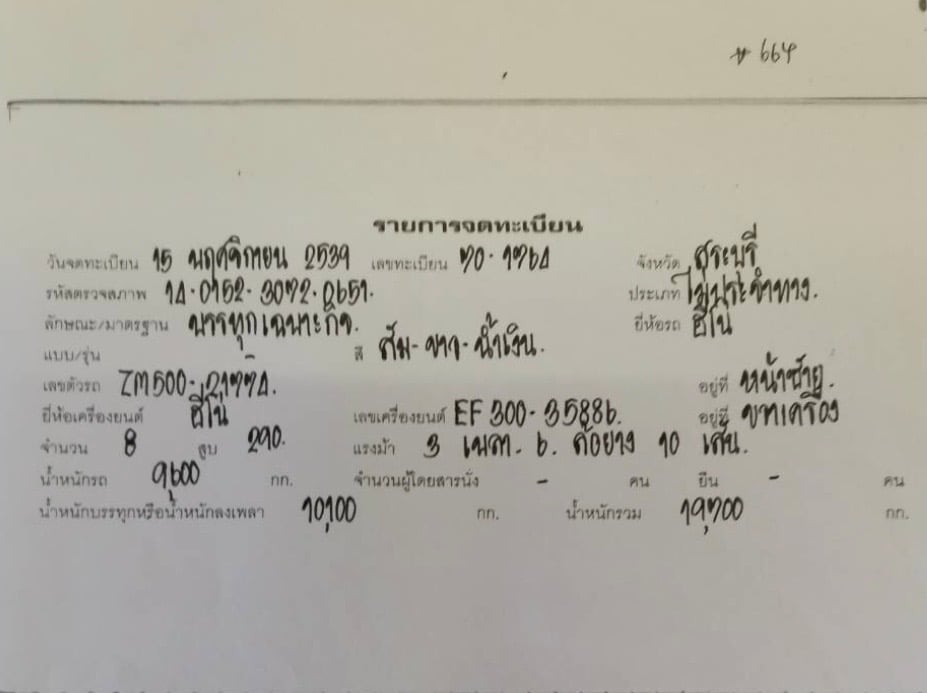 # 664
รายการจดทะเบียน
วันจดทะเบียน 15 พฤศจิกายน 2539 เลขทะเบียน 70-1764 จังหวัด สระบุรี
รหัสตรวจสภาพ 14-0152-3072-0651. ประเภท ไม่ประจำทาง.
ลักษณะ/มาตรฐาน บรรทุกเฉพาะกิจ. ยี่ห้อรถ ฮีโน่
แบบ/รุ่น สี ส้ม-ขาว-น้ำเงิน.
เลขตัวรถ ZM500-21774. อยู่ที่ หน้าซ้าย.
ยี่ห้อเครื่องยนต์ ฮีโน่ เลขเครื่องยนต์ EF300-35886. อยู่ที่ ขวาเครื่อง
จำนวน 8 สูบ 290. แรงม้า 3 เพลา. 6. ล้อยาง 10 เส้น.
น้ำหนักรถ 9,600 กก. จำนวนผู้โดยสารนั่ง - คน ยืน - คน
น้ำหนักบรรทุกหรือน้ำหนักลงเพลา 10,100 กก. น้ำหนักรวม 19,700 กก.